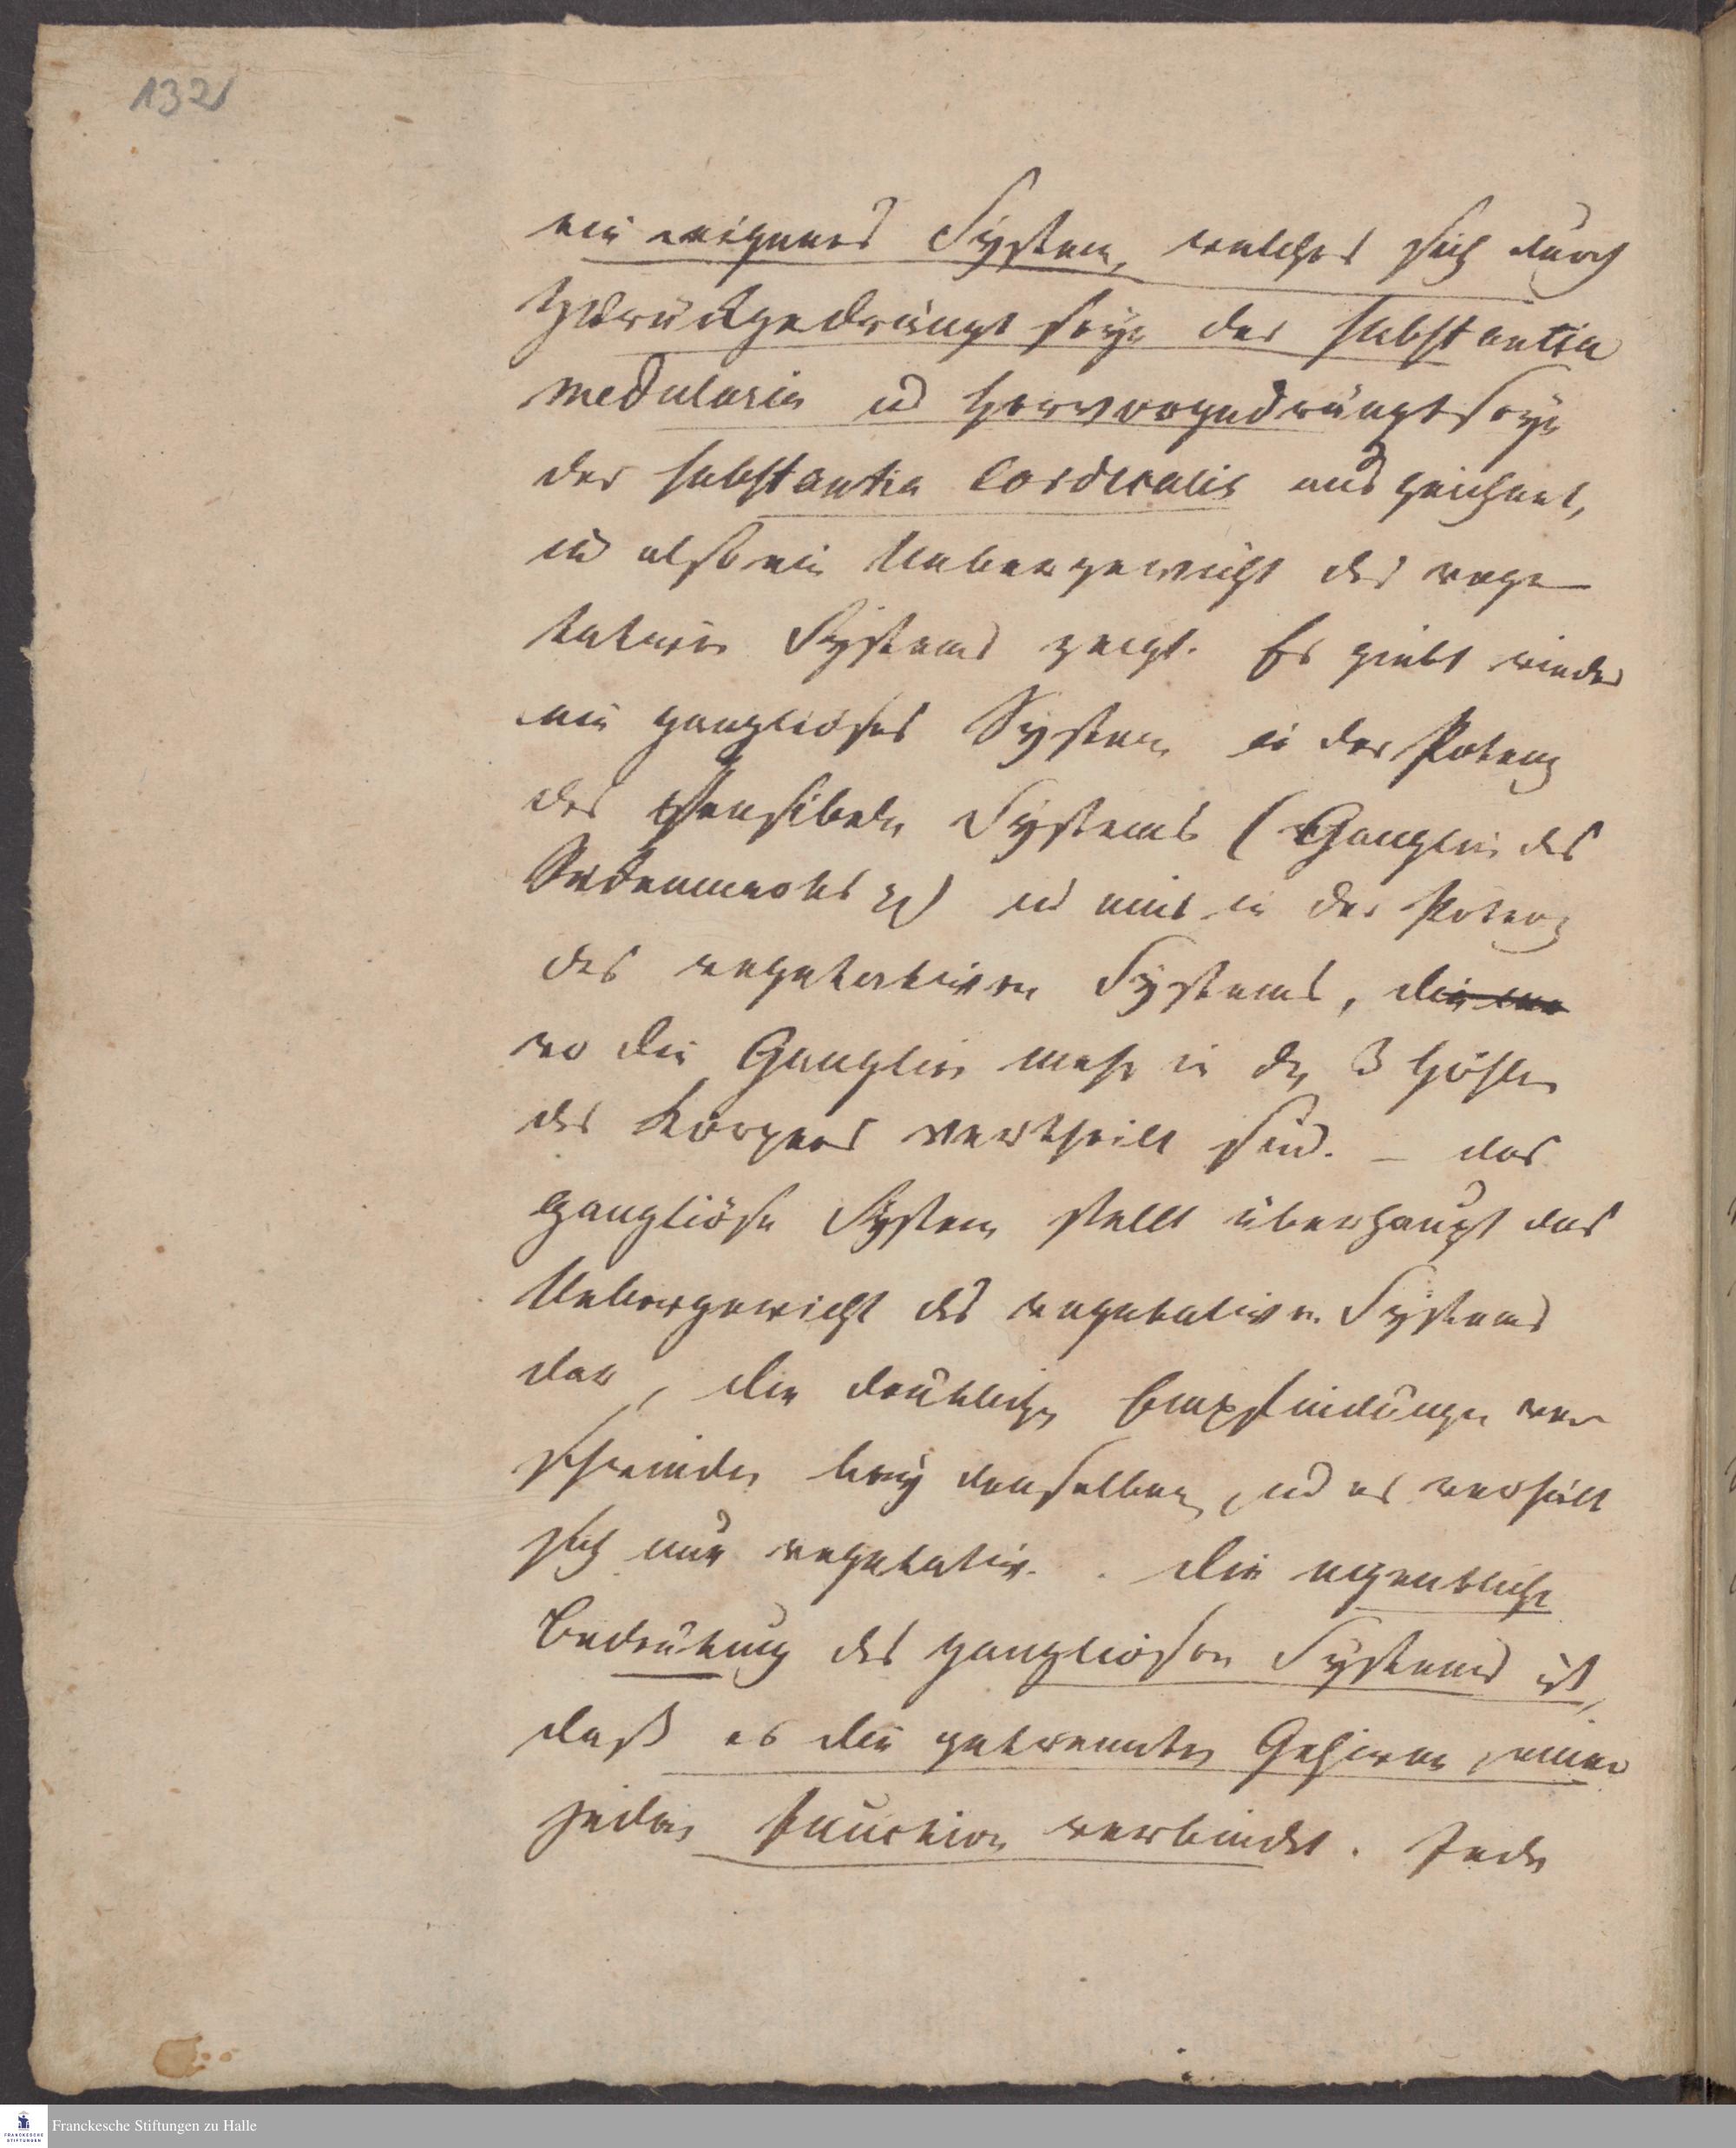 132
ein eigenes System, welches sich durch
Zurückgedrängt seyn der substantia
medularis ud hervorgedrängtseyn
der substantia Cordicalis auszeichnet,
ud also ein Uebergewicht des vege
tativen Systems zeigt. Es giebt wieder
ein gangliöses System in der Potenz
des sensibeln Systems (Ganglien des
ud eins in der Potenz
des vegetativen Systems, die
wo die Ganglien mehr in den 3 Höhlen
des Körpers vertheilt sind. – das
gangliöse System stellt überhaupt das
Uebergewicht des vegetativen Systems
dar, die deutlichen Empfindungen ver
schwinden bey denselben, ud es verhält
sich nur vegetativ. Die eigentliche
Bedeutung des gangliösen Systems ist,
daß es die getrennten Gehirne einer
jeden Function verbindet. Jedes
Franckesche Stiftungen zu Halle
FRANCKESCHE
STIFTUNGEN